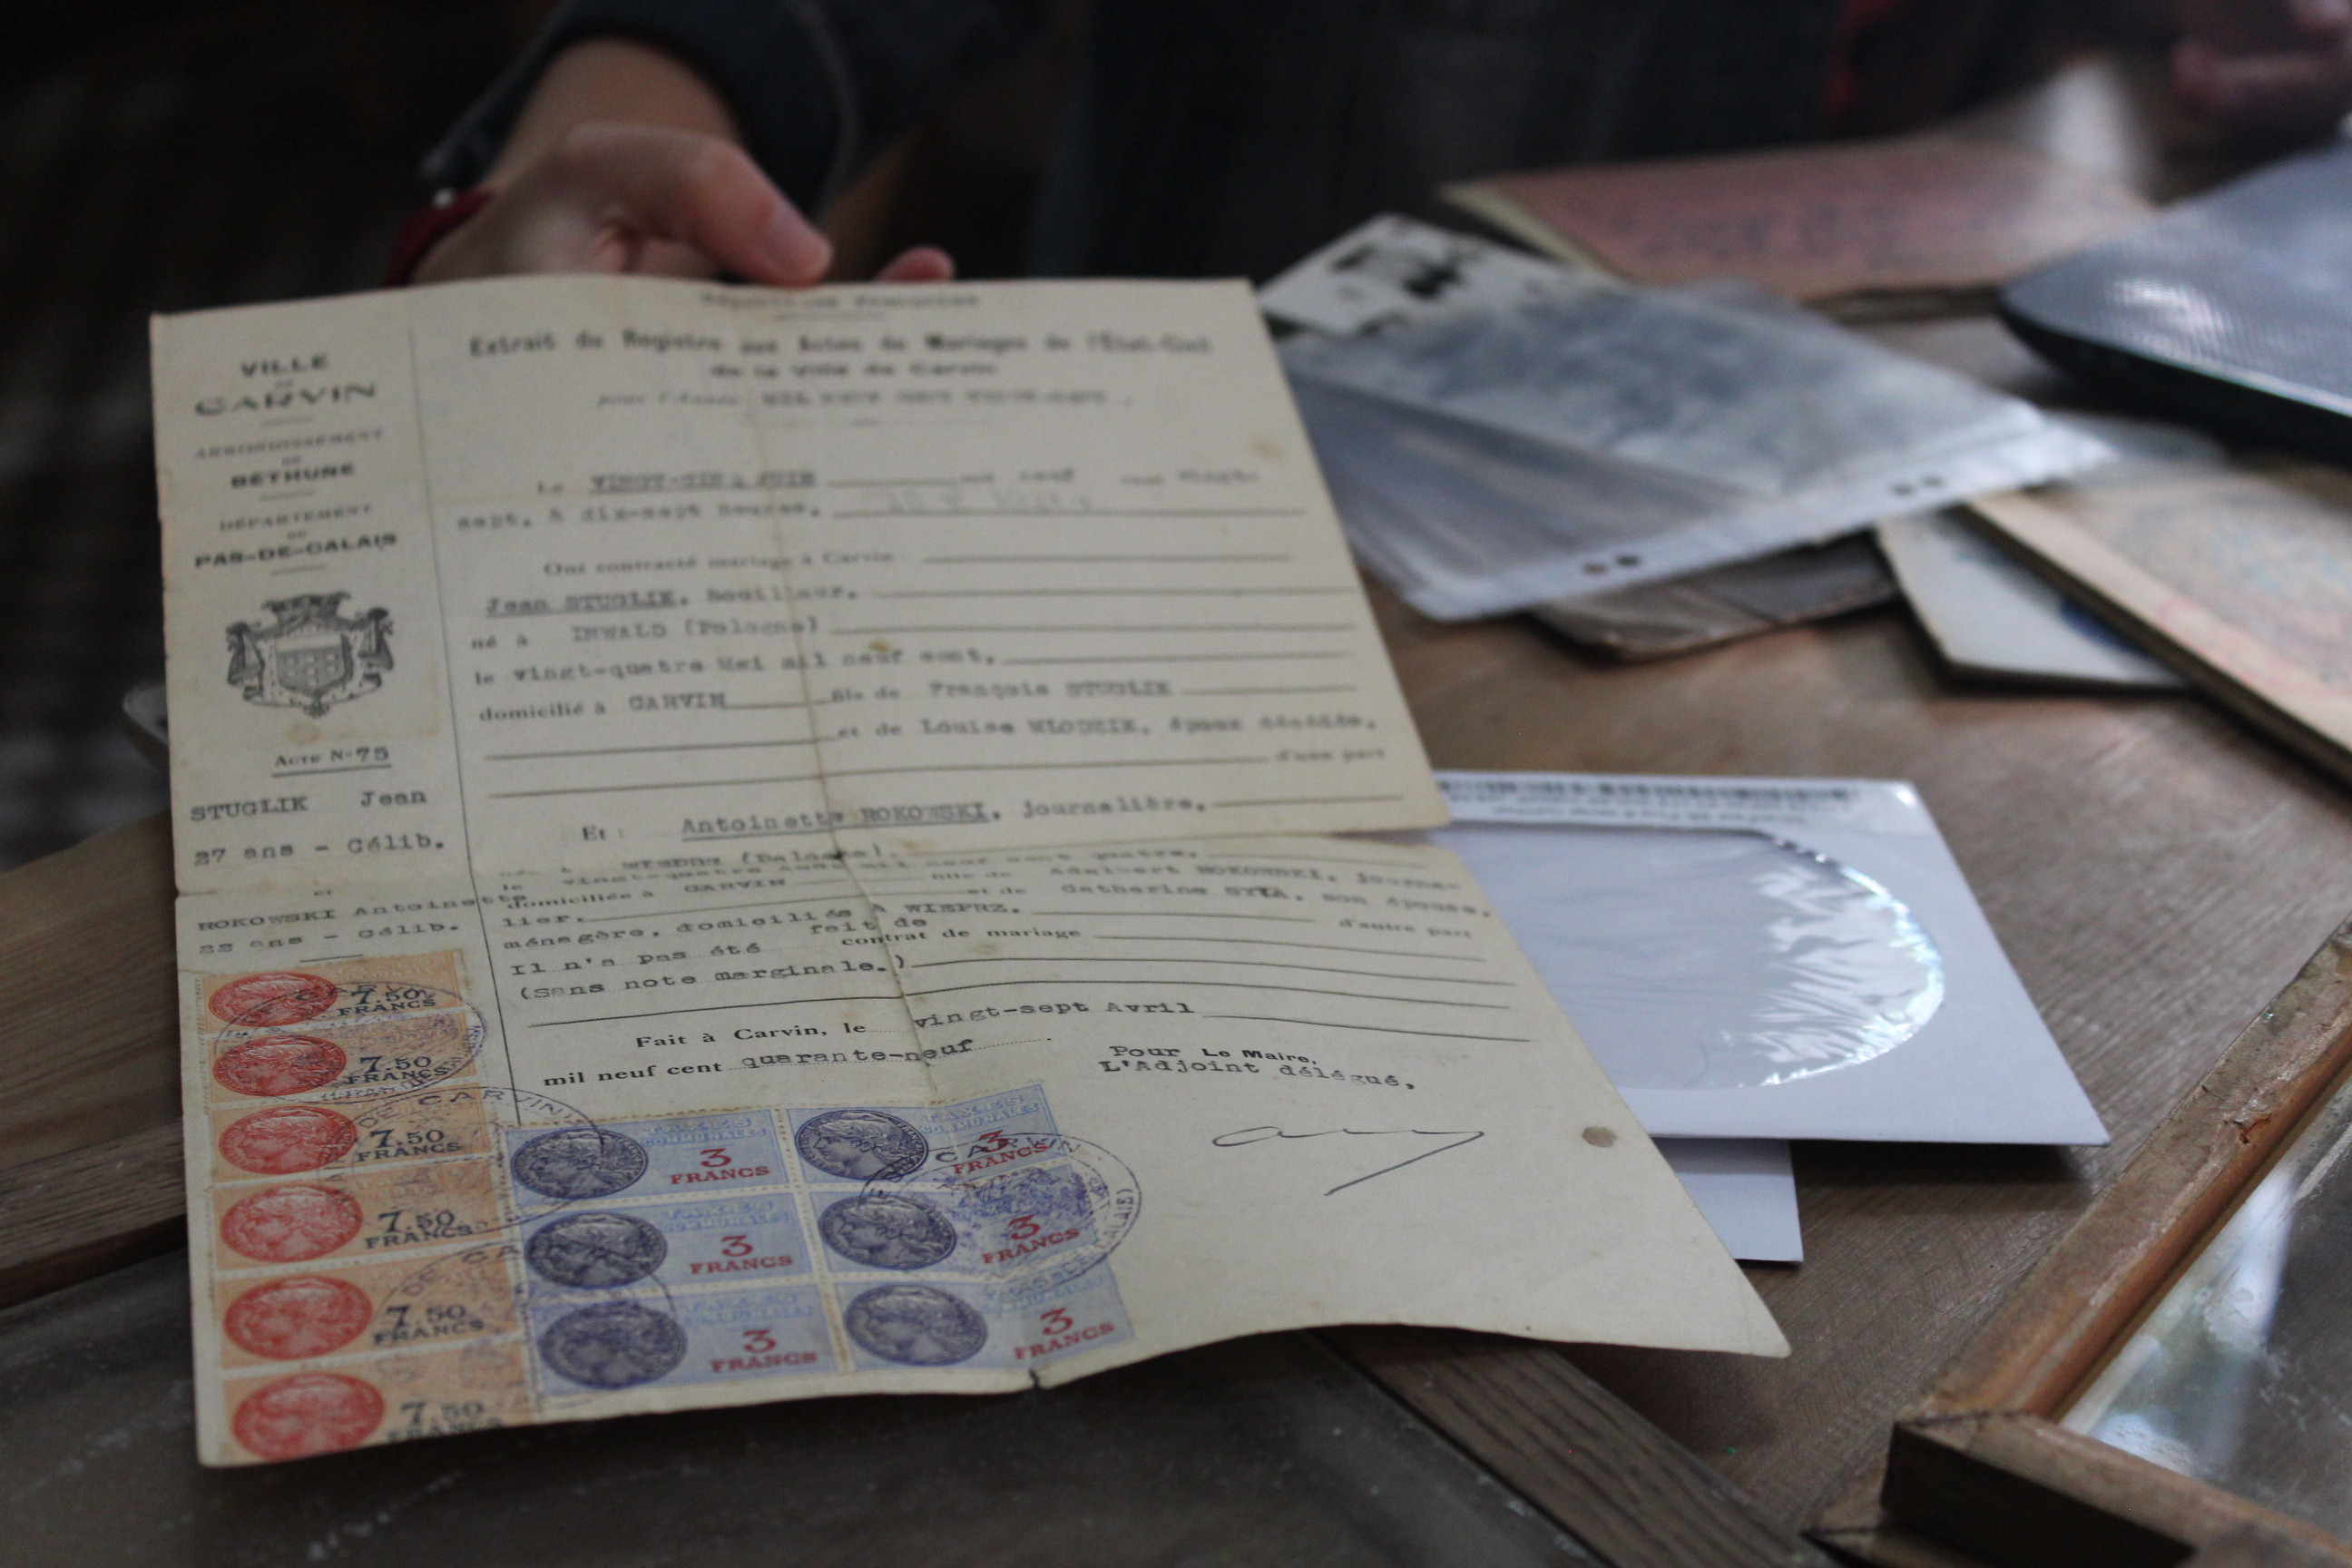 VILLE
DE
CARVIN
ARRONDISSEMENT
DE
BÉTHUNE
DÉPARTEMENT
DU
PAS-DE-CALAIS
Acte N° 75
STUGLIK Jean
27 ans - Célib.
ET
ROKOWSKI Antoinette
22 ans - Célib.
République Française
Extrait du Registre aux Actes de Mariages de l'État-Civil
de la Ville de Carvin
pour l'Année MIL NEUF CENT VINGT-SEPT .
Le VINGT-CINQ JUIN mil neuf cent vingt-
sept, à dix-sept heures,
Ont contracté mariage à Carvin
Jean STUGLIK, houilleur,
né à INWALD (Pologne)
le vingt-quatre Mai mil neuf cent,
domicilié à CARVIN fils de François STUGLIK
et de Louise WLODZIK, époux décédés,
d'une part
Et : Antoinette ROKOWSKI, journalière,
WIEPRZ (Pologne),
le vingt-quatre mil neuf cent quatre,
domiciliée à CARVIN fille de Adalbert ROKOWSKI, journa-
lier, et de Catherine SYTA, son épouse,
ménagère, domiciliés à WIEPRZ. d'autre part
Il n'a pas été fait de contrat de mariage
(Sans note marginale.)
Fait à Carvin, le vingt-sept Avril
mil neuf cent quarante-neuf
Pour Le Maire,
L'Adjoint délégué,
7.50
FRANCS
7.50
FRANCS
7.50
FRANCS
7.50
FRANCS
7.50
FRANCS
7.50
FRANCS
TAXES
COMMUNALES
3
FRANCS
TAXES
COMMUNALES
3
FRANCS
TAXES
COMMUNALES
3
FRANCS
3
FRANCS
3
FRANCS
3
FRANCS
DE CARVIN